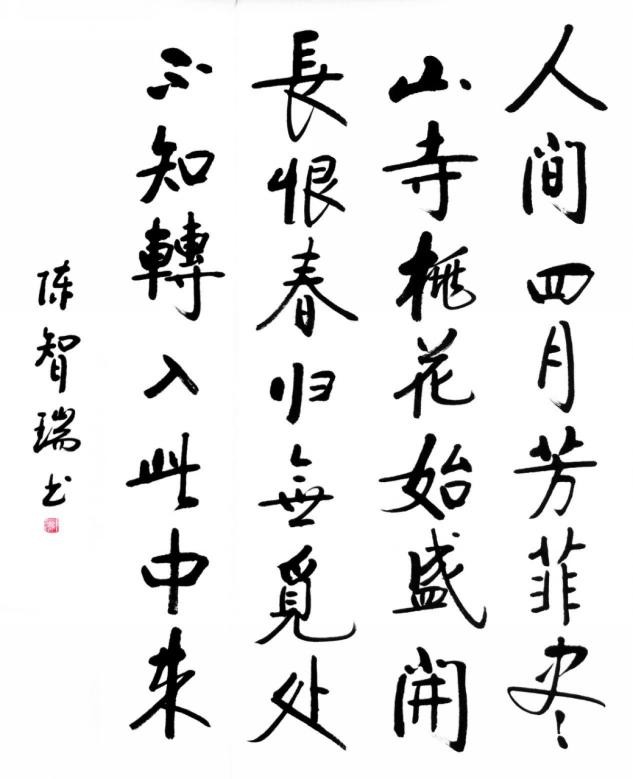 人间四月芳菲尽
山寺桃花始盛開
長恨春归無覓处
不知轉入此中来
陈智瑞书